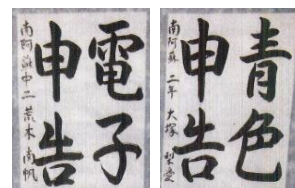 電子
申告
南阿蘇中二 荒木南帆
青色
申告
南阿蘇二年 大塚梨愛